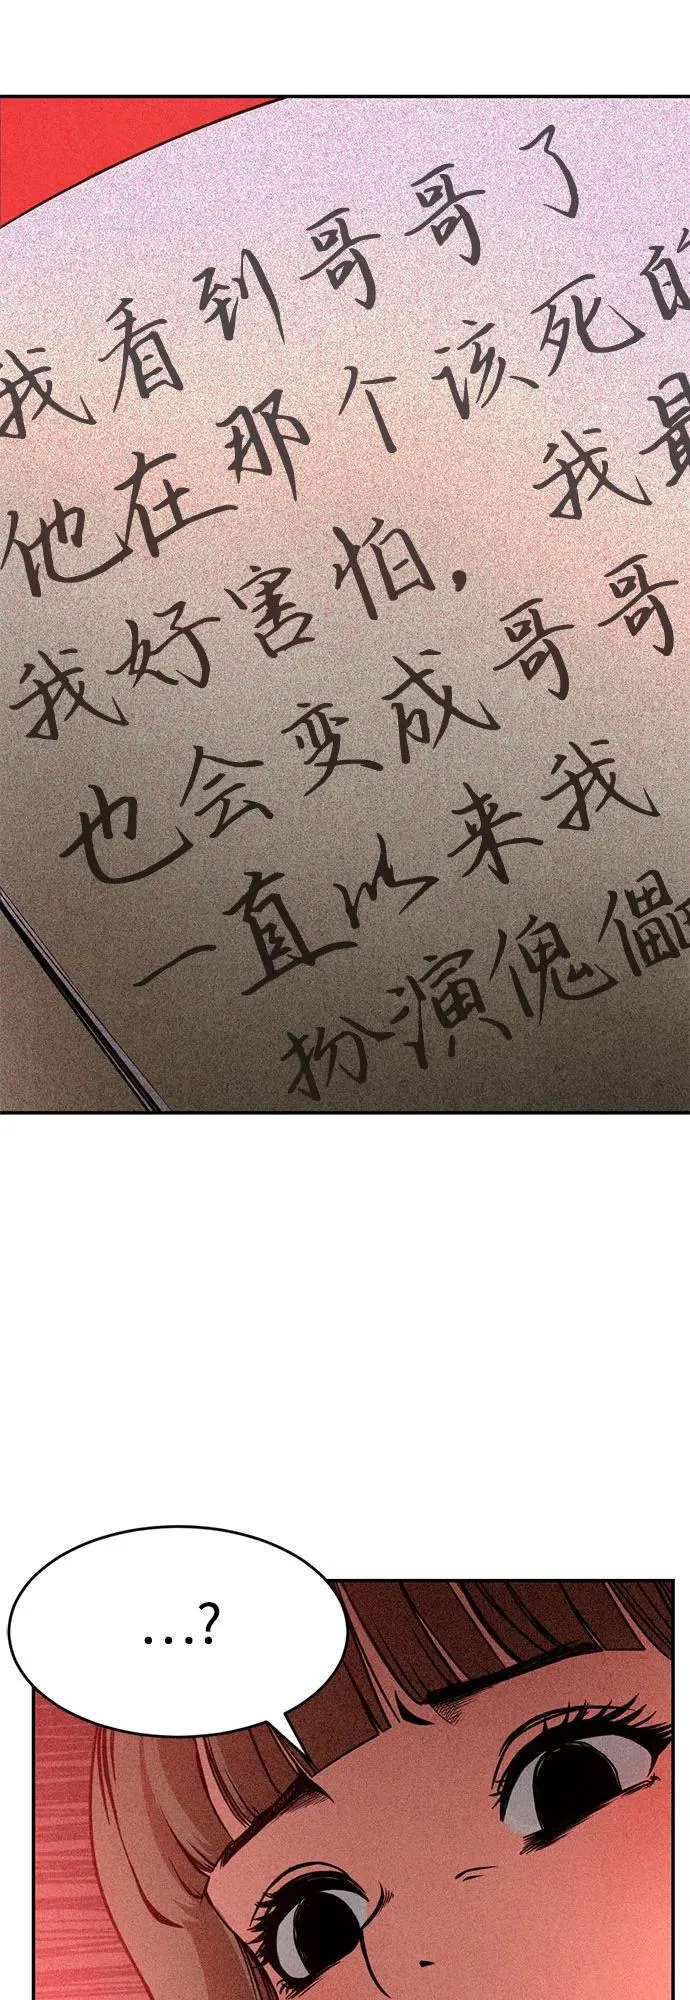 我看到哥哥了
他在那个该死的
我好害怕，我最
也会变成哥哥
一直以来我
扮演傀儡
...?